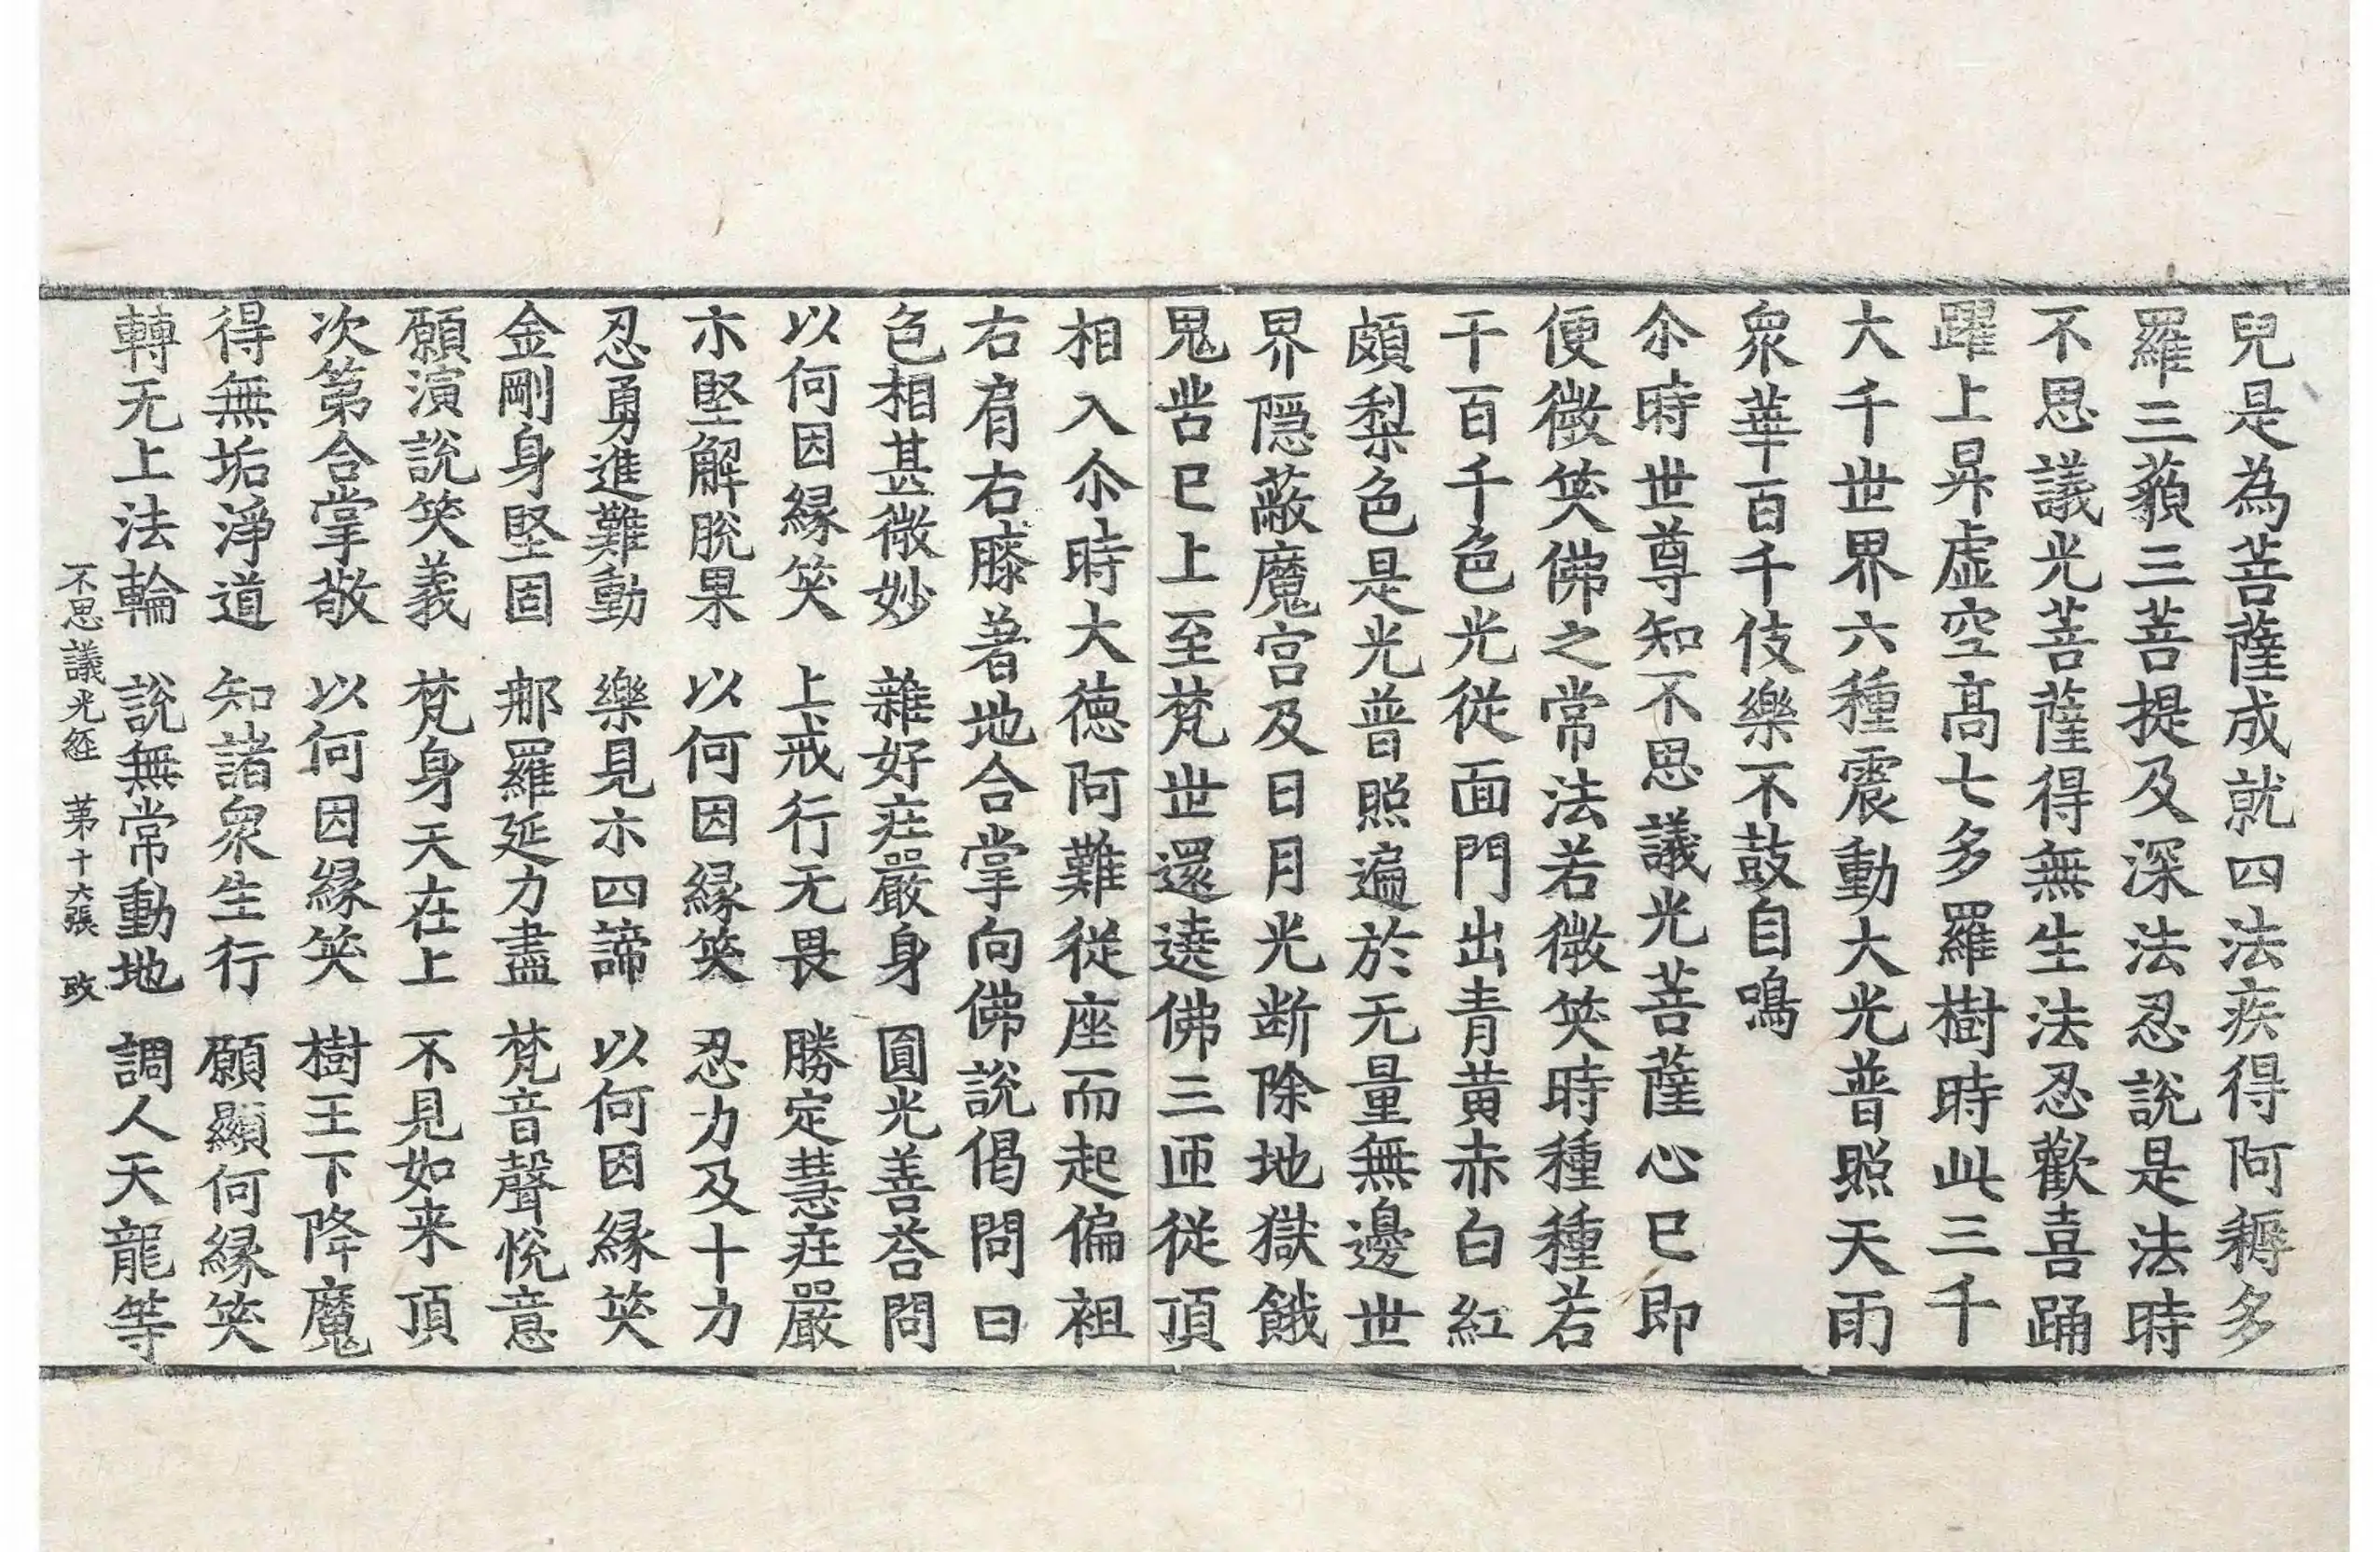 兒是為菩薩成就四法疾得阿耨多
羅三藐三菩提及深法忍說是法時
不思議光菩薩得無生法忍歡喜踊
躍上昇虛空高七多羅樹時此三千
大千世界六種震動大光普照天雨
衆華百千伎樂不鼓自鳴
尒時世尊知不思議光菩薩心已即
便微笑佛之常法若微笑時種種若
干百千色光從面門出青黃赤白紅
頗梨色是光普照遍於无量無邊世
界隱蔽魔宮及日月光斷除地獄餓
鬼苦已上至梵世還遶佛三匝從頂
相入尒時大德阿難從座而起偏袒
右肩右膝著地合掌向佛說偈問曰
色相甚微妙 雜好庄嚴身 圓光善荅問
以何因緣笑 上戒行无畏 勝定慧庄嚴
示堅解脫果 以何因緣笑 忍力及十力
忍勇進難動 樂見示四諦 以何因緣笑
金剛身堅固 那羅延力盡 梵音聲悅意
願演說笑義 梵身天在上 不見如来頂
次第合掌敬 以何因緣笑 樹王下降魔
得無垢淨道 知諸衆生行 願顯何緣笑
轉无上法輪 說無常動地 調人天龍等
不思議光經 第十六張 改